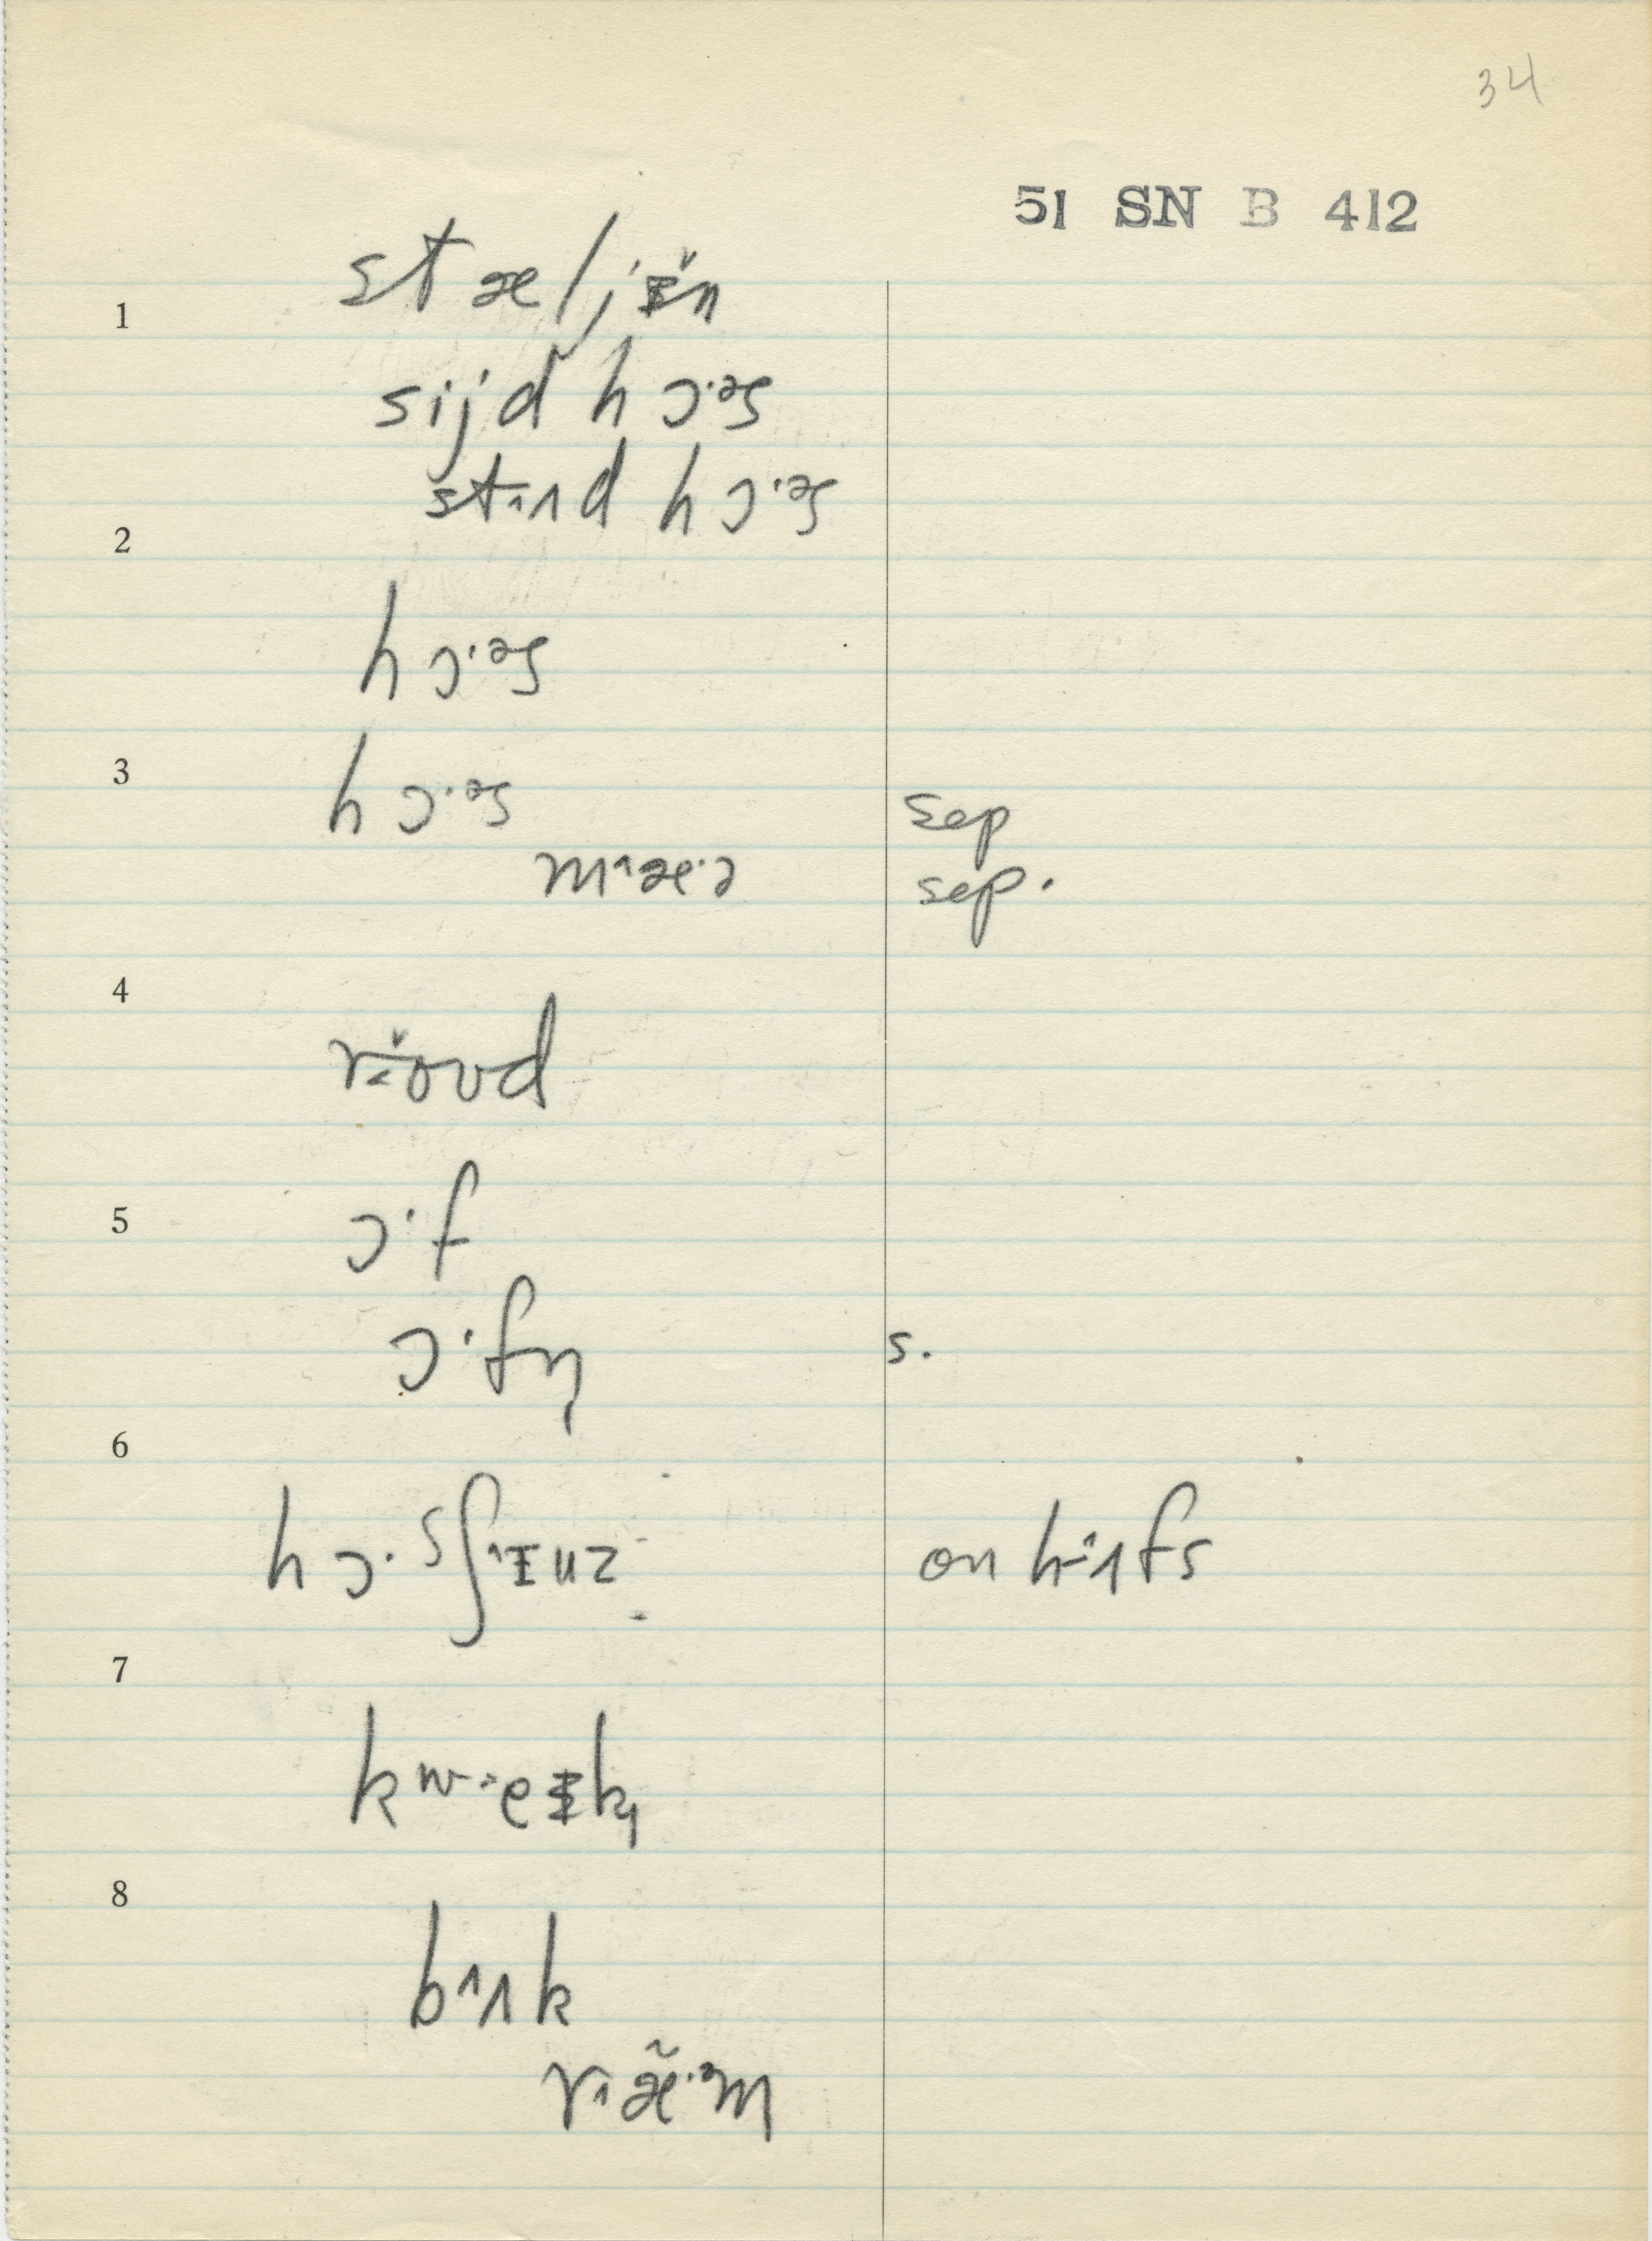 34
51 SN B 412
1
stæljɨ̆n
sijd hɔ·əs
stʌnd hɔ·əs
2
hɔ·əs
3
hɔ·əs sep
m^æ·ə sep.
4
r‹ŏʊd
5
ɔ·f
ɔ·fn̩ s.
6
hɔ·sʃ^ɪuz on h‹ʌfs
7
kw‹eɨk
8
b^ʌk
r^æ̃·əm